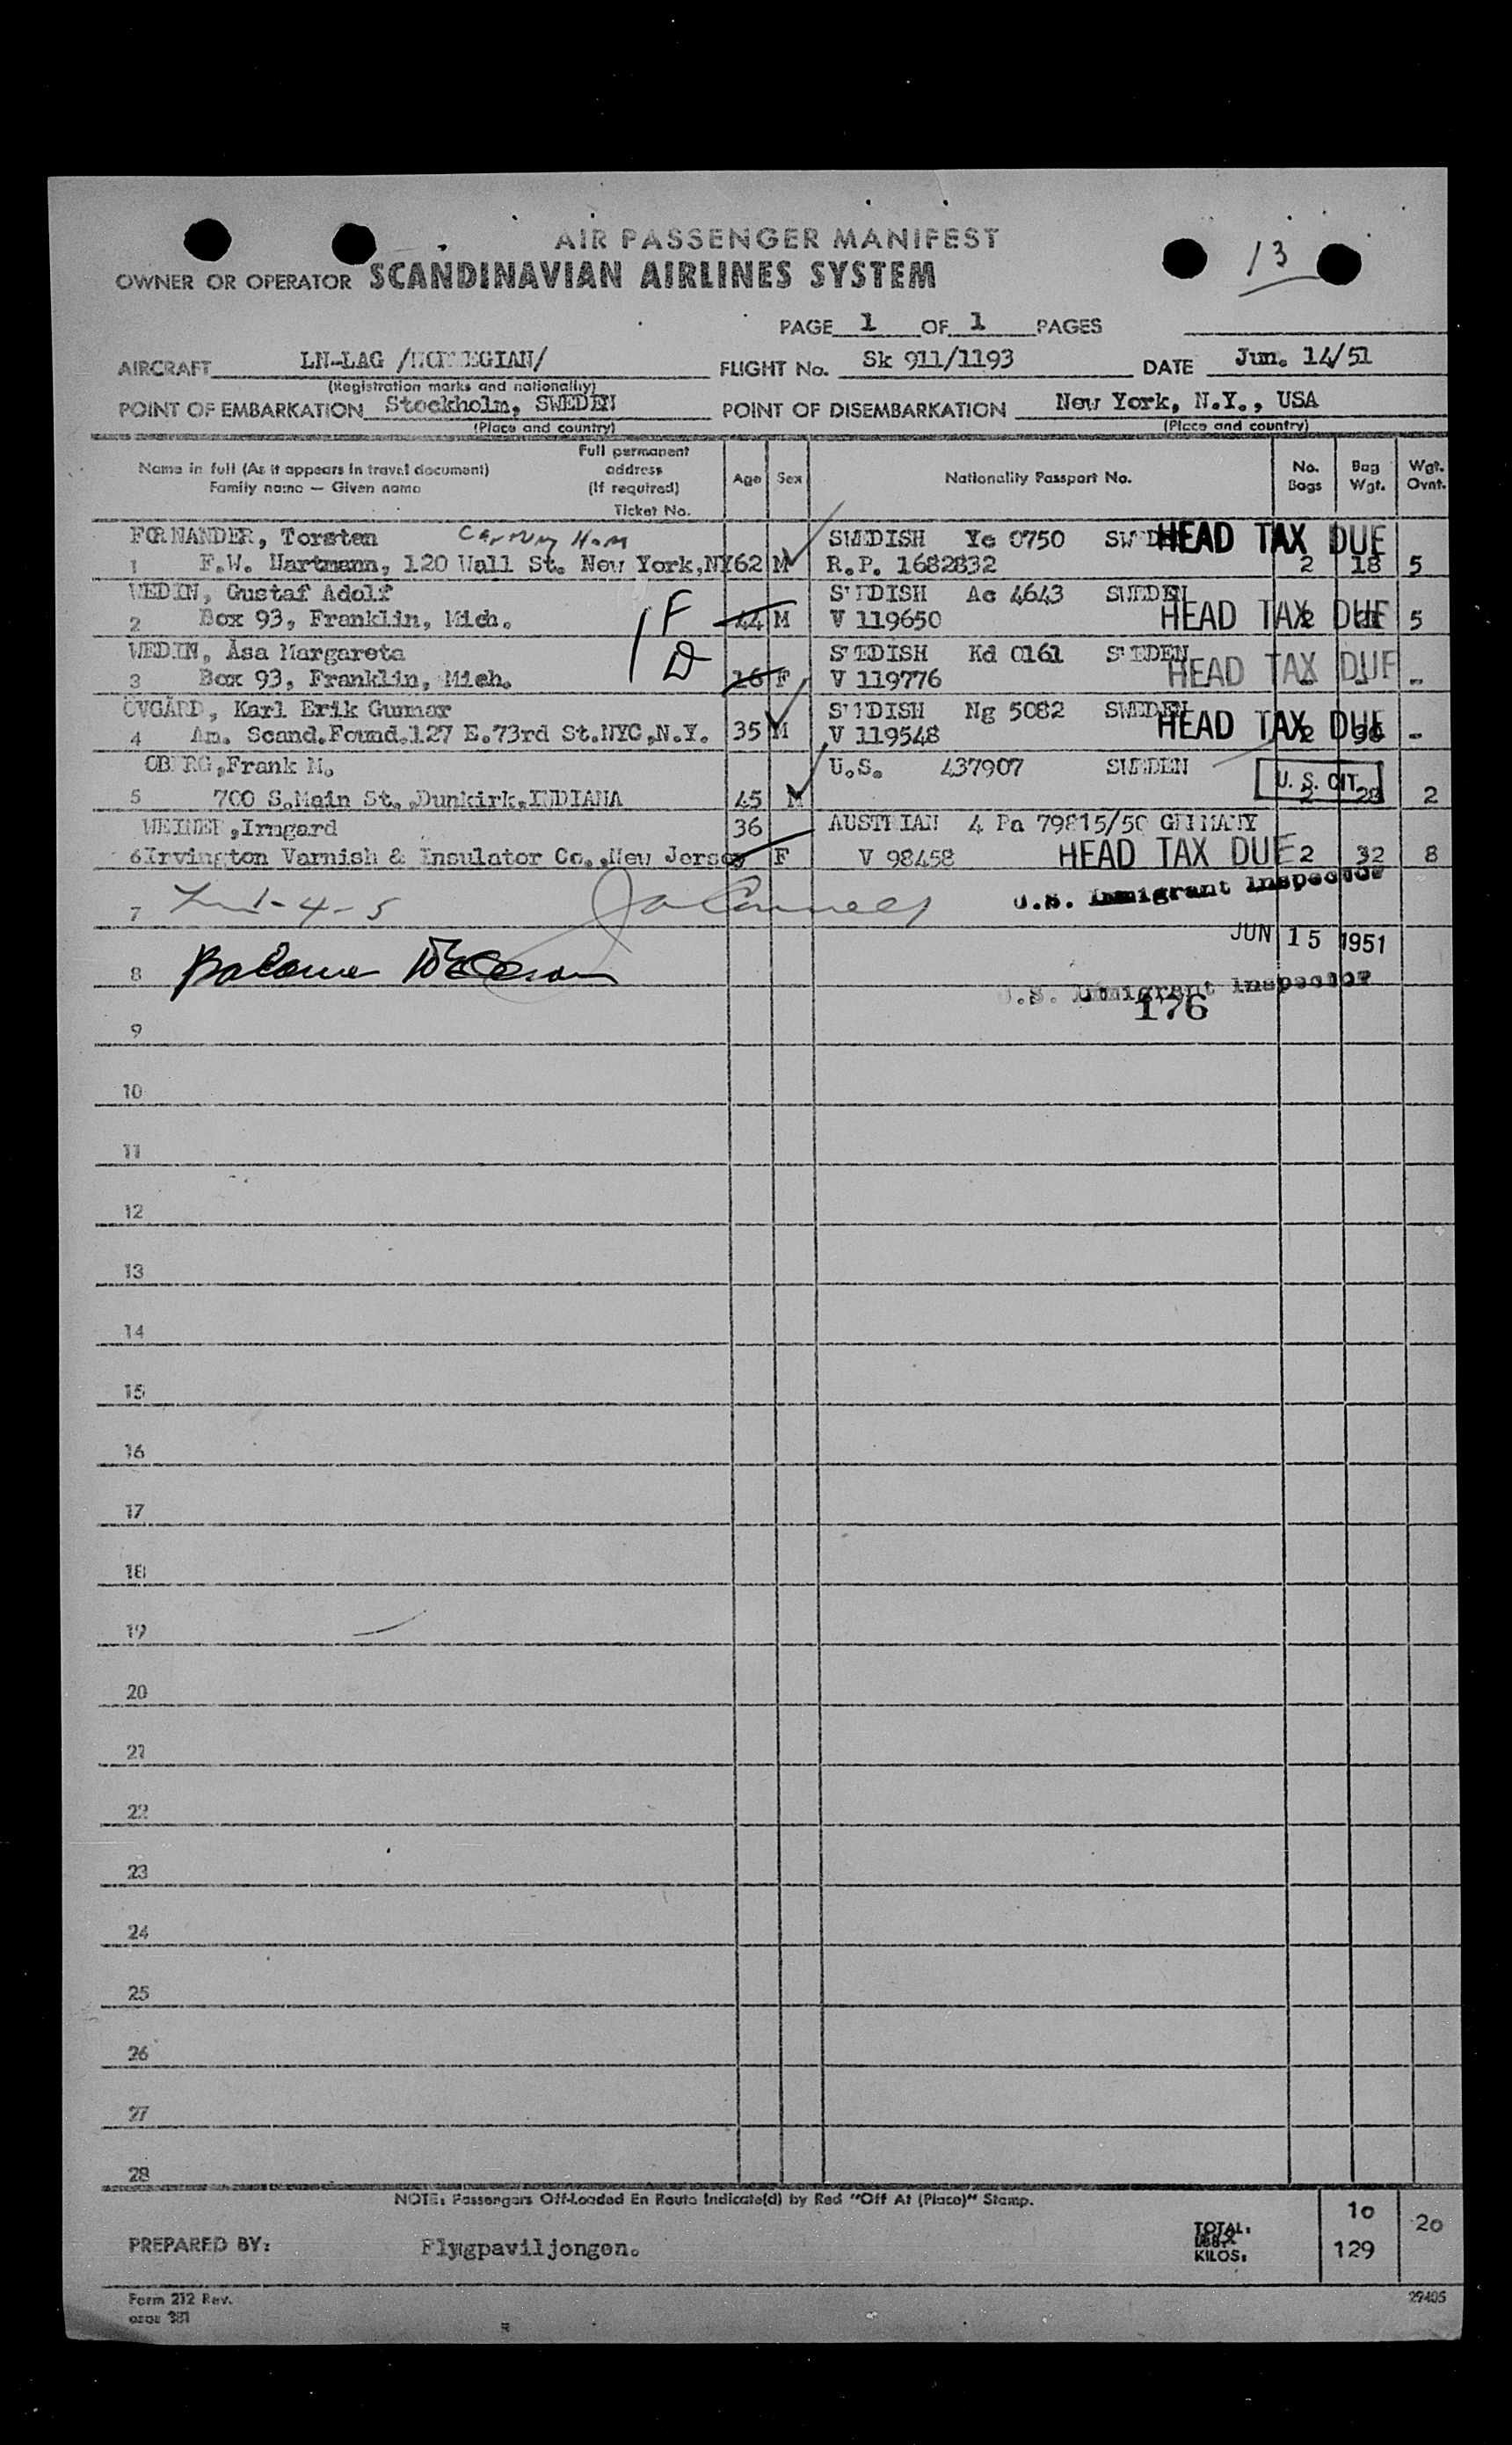 13
AIR PASSENGER MANIFEST
OWNER OR OPERATOR SCANDINAVIAN AIRLINES SYSTEM
PAGE 1 OF 1 PAGES
AIRCRAFT LN-LAG /NORWEGIAN/ FLIGHT No. Sk 911/1193 DATE Jun. 14/51
(Registration marks and nationality)
POINT OF EMBARKATION Stockholm, SWEDEN POINT OF DISEMBARKATION New York, N.Y., USA
(Place and country) (Place and country)
Name in full (As it appears in travel document) Family name — Given name Full permanent address (If required) Ticket No. Age Sex Nationality Passport No. No. Bags Bag Wgt. Wgt. Ovnt.
FORNANDER, Torsten SWEDISH Ye 0750 SWEDEN HEAD TAX DUE
1 F.W. Hartmann, 120 Wall St. New York,NY 62 M R.P. 1682832 2 18 5
WEDIN, Gustaf Adolf F SWEDISH Ac 4643 SWEDEN
2 Box 93, Franklin, Mich. 44 M V 119650 HEAD TAX DUE 2 5
WEDIN, Åsa Margareta D SWEDISH Kd 0161 SWEDEN
3 Box 93, Franklin, Mich. 16 F V 119776 HEAD TAX DUE - - -
ÖVGÅRD, Karl Erik Gunnar SWEDISH Ng 5082 SWEDEN
4 Am. Scand.Found.127 E.73rd St.NYC,N.Y. 35 M V 119548 HEAD TAX DUE 2 -
OBERG,Frank M. U.S. 437907 SWEDEN U. S. CIT.
5 700 S.Main St.,Dunkirk,INDIANA 45 M 2 2
WEINER,Irmgard 36 AUSTRIAN 4 Pa 79815/50 GERMANY
6 Irvington Varnish & Insulator Co.,New Jersey F V 98458 HEAD TAX DUE 2 32 8
7 1-4-5 U.S. Immigrant Inspector
JUN 15 1951
8 Balance
U.S. Immigrant Inspector
176
9
10
11
12
13
14
15
16
17
18
19
20
21
22
23
24
25
26
27
28
NOTE: Passengers Off-Loaded En Route Indicate(d) by Red "Off At (Place)" Stamp.
PREPARED BY: Flygpaviljongen. TOTAL: KILOS: 10 129 20
Form 212 Rev. 29405